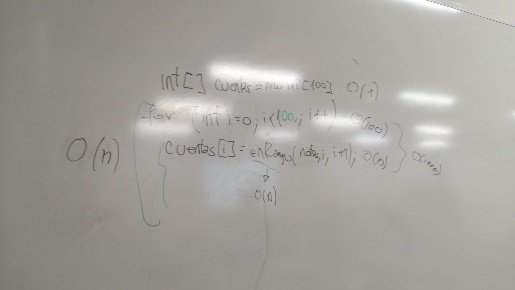 int[] cuentas = new int[100] O(1)
for (int i=0; i<100; i++) O(100)
O(n) cuentas[i] = enRango(notas, i, i+1); O(n)
O(n)